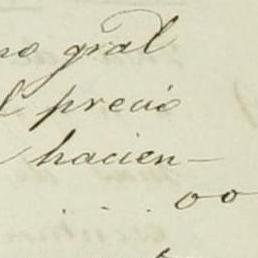 no gral
l precio
hacien-
. . . oo